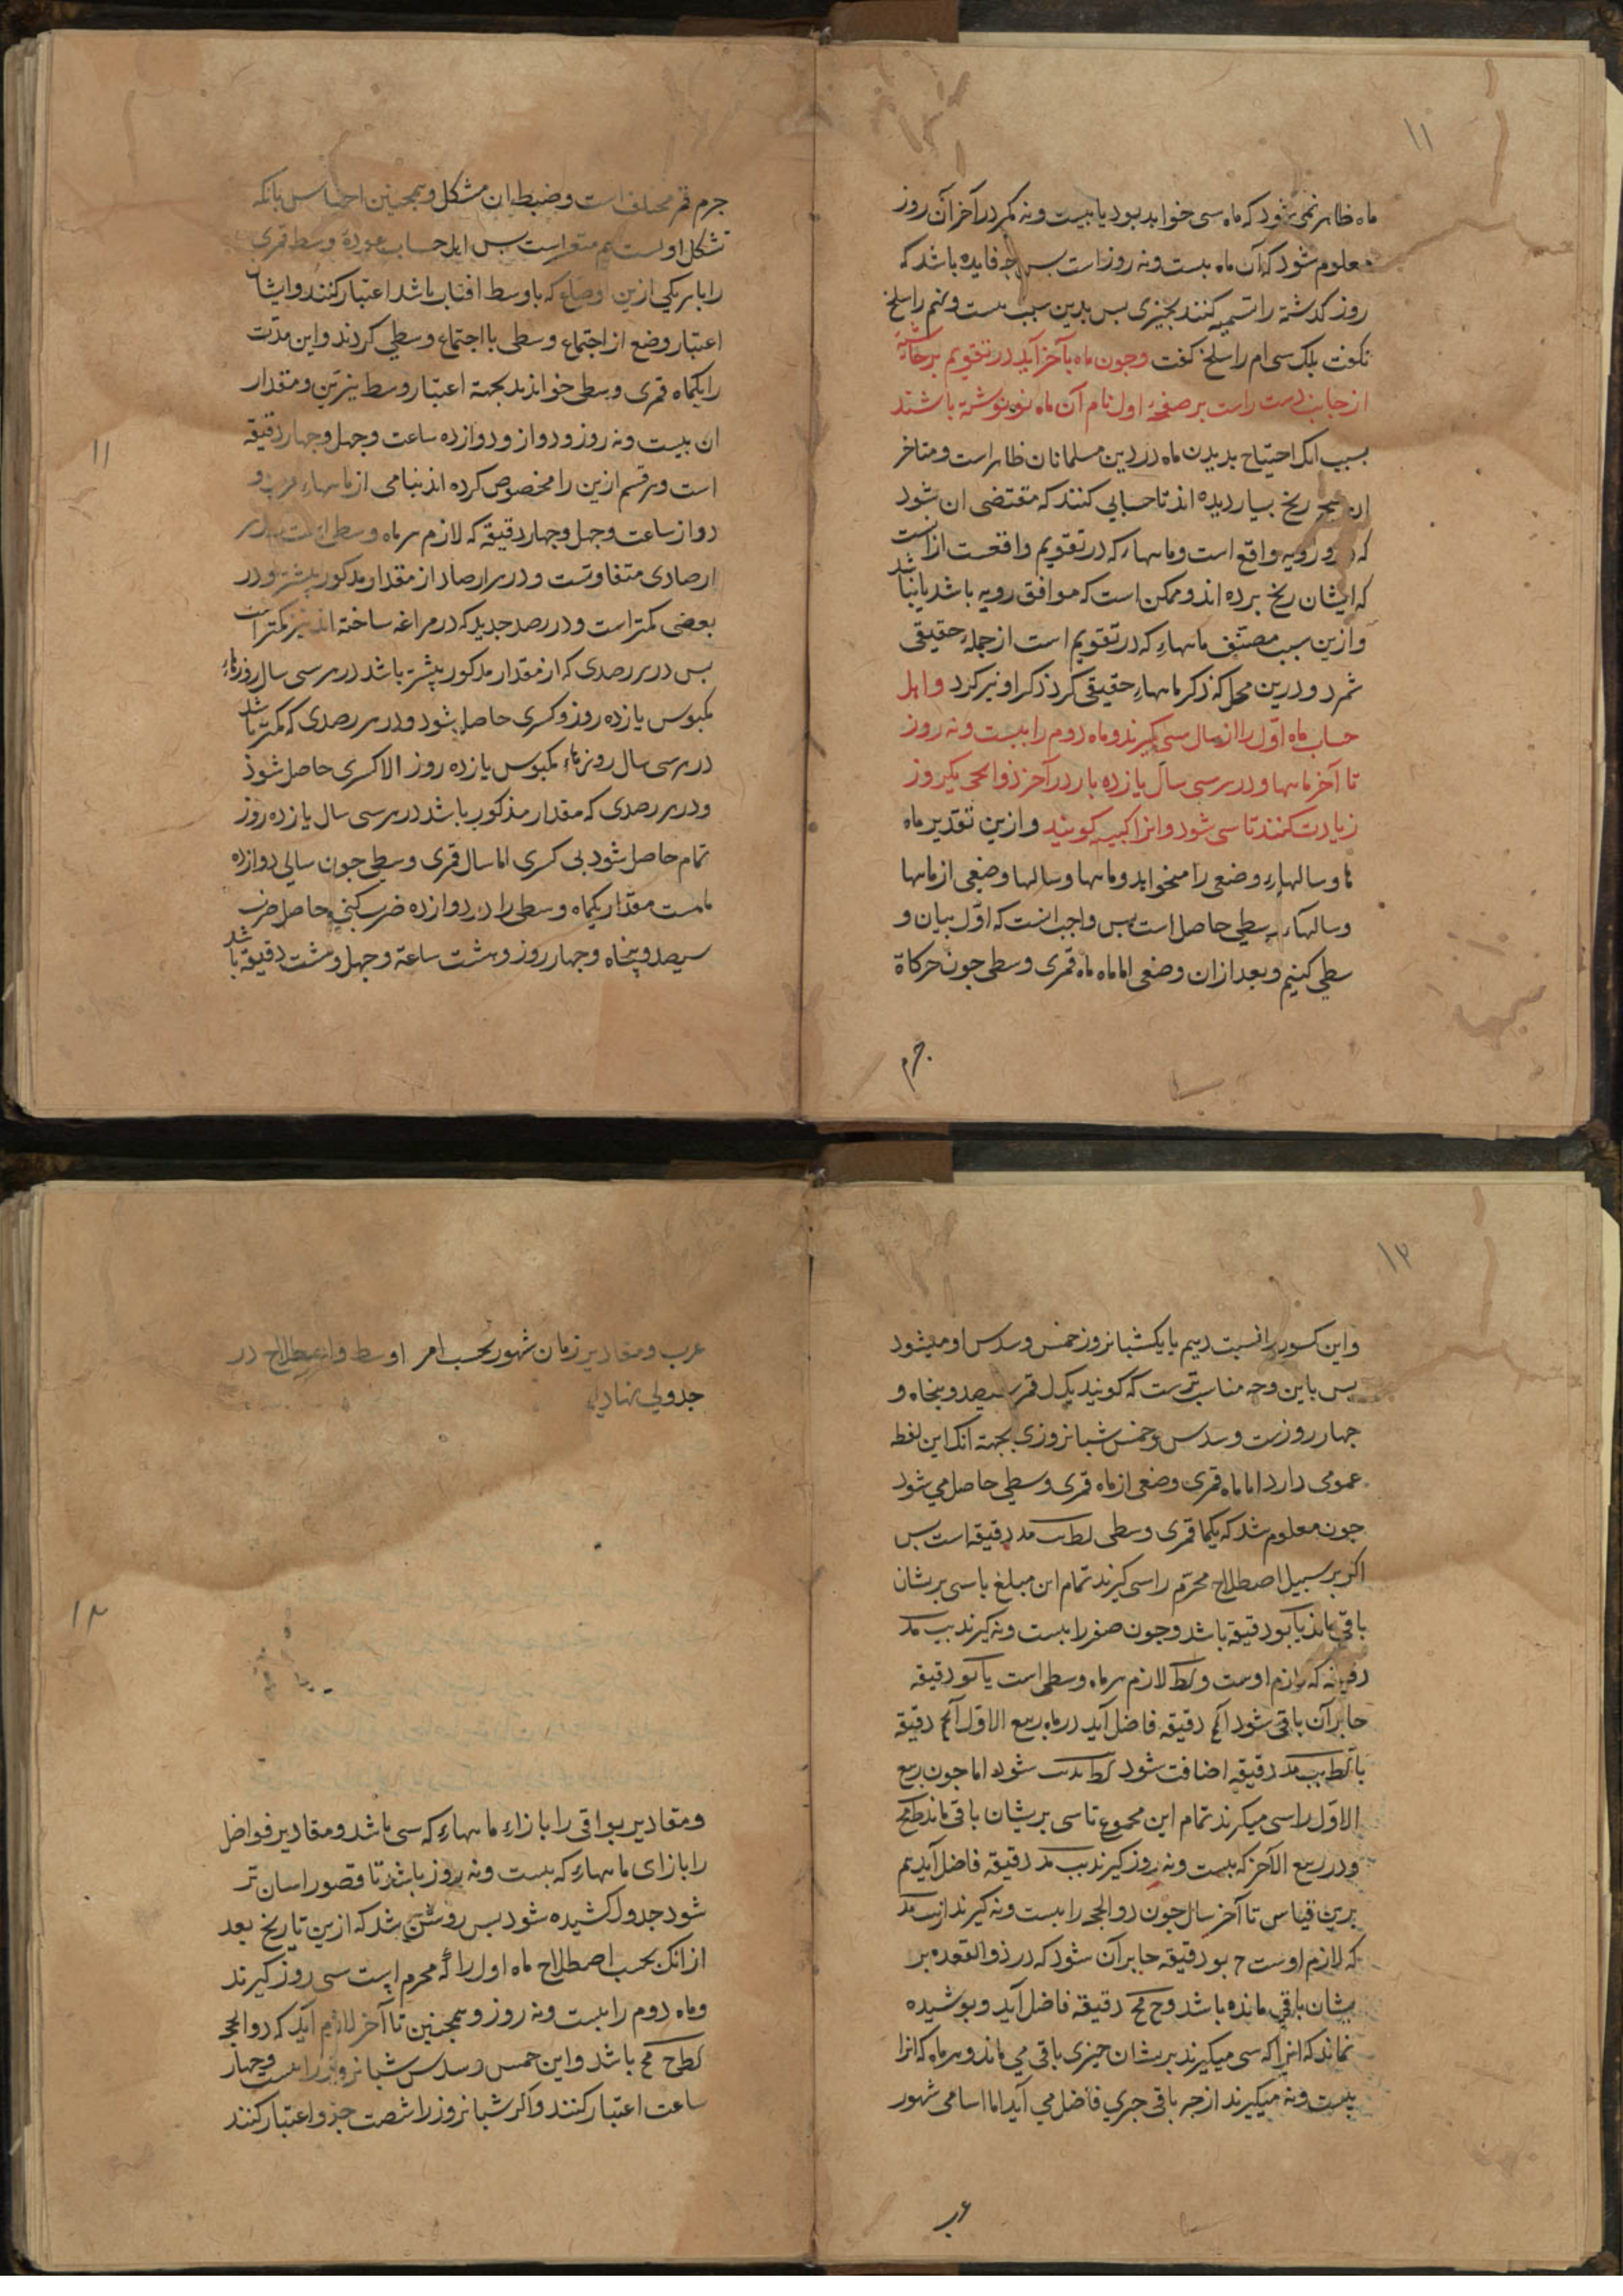 ۱۱
ماه ظاهر نمی شود که ماه سی خواهد بود یا بیست و نه مکر در آخر آن روز
معلوم شود که آن ماه بیست و نه روز است بس چه فایده باشد که
روز کدشته را تسمیه کنند بجیزی بس بدین سبب بیست و نهم را سلخ
نکفت بلک سی ام را سلخ کفت وجون ماه بآخر آید در تقویم بر حاشیه
از جانب دست راست بر صفحهٔ اول نام آن ماه نو نوشته باشند
بسبب انک احتیاج بدیدن ماه در دین مسلمانان ظاهر است و متاخر
ان ریخ بسیار دیده اند تا حسابی کنند که مقتضی ان شود
که رویه واقع است و ماههاء که در تقویم واقعست ازانست
که ایشان ریخ برده اند و ممکن است که موافق رویه باشد یا نباشد
وازین سبب مصنّف ماههاءِ که در تقویم است از جملهٔ حقیقی
شمرد و درین محل که ذکر ماههاءِ حقیقی کرد ذکر او نیز کرد واهل
حساب ماه اوّل را از سال سی کیرند و ماه دوم را بیست و نه روز
تا آخر ماهها و در هر سی سال یازده بار در آخر ذوالحجه یکروز
زیادت کنند تا سی شود وانرا کبیسه کویند وازین تقدیر ماه
ها و سالهاءِ وضعی را میخواهد و ماهها و سالها وضعی از ماهها
و سالهاء وسطی حاصل است بس واجب انست که اوّل بیان و
سطی کنیم و بعد ازان وضعی اما ماه ماه قمری وسطی جون حرکاة
جرم
جرم قمر مختلف است و ضبط ان مشکل و همجنین احساس بانکه
تشکل اولست هم متعذر است بس اهل حساب عودة وسط قمری
را با هر یکی ازین اوضاع که با وسط افتاب باشد اعتبار کنند و ایشان
اعتبار وضع از اجتماع وسطی با اجتماع وسطی کردند و این مدّت
را یکماه قمری وسطی خوانند بجهة اعتبار وسط نیّرین و مقدار
ان بیست و نه روز و دواز و دوازده ساعت و جهل و جهار دقیقه
۱۱
است و هر قسم ازین را مخصوص کرده اند بنامی از ماههاءِ عرب و
دواز ساعت وجهل وجهار دقیقه که لازم هر ماه وسطی است
ارصادی متفاوتست و در هر ارصاد از مقدار مذکور بیشتر و در
بعضی کمتر است و در رصد جدید که در مراغه ساخته اند نیز کمتر است
بس در هر رصدی که از مقدار مذکور بیشتر باشد در هر سی سال روزهاءِ
مکبوس یازده روز و کسری حاصل شود و در هر رصدی که کمتر باشد
در هر سی سال روزهاءِ مکبوس یازده روز الا کسری حاصل شود
ودر هر رصدی که مقدار مذکور باشد در هر سی سال یازده روز
تمام حاصل شود بی کسری اما سال قمری وسطی جون سالی دوازده
ماهست مقدار یکماه وسطی را در دوازده ضرب کنیم حاصل ضرب
سیصد و پنجاه و جهار روز و هشت ساعة و جهل و هشت دقیقه باشد
۱۲
واین کسور را نسبت دهیم با یکشبانروز خمس و سدس او میشود
بس باین وجه مناسب ترست که کویند یک سال قمر سیصد و پنجاه و
جهار روزست و سدس و خمس شبانروزی بجهة انک این لفظ
عمومی دارد اما ماه قمری وضعی از ماه قمری وسطی حاصل می شود
جون معلوم شد که یکماه قمری وسطی لط ب مد دقیقه است بس
اکر بر سبیل اصطلاح محرّم را سی کیرند تمام این مبلغ با سی بریشان
باقی ماند دقیقه باشد وجون صفر را بیست و نه کیرند یب مد
دقیقه که لازم اوست و لازم هر ماه وسطی است دقیقه
جابر آن باقی شود دقیقه فاضل آید در ماه ربیع الاوّل دقیقه
با کط یب مد دقیقه اضافت شود شود اما جون ربیع
الاوّل را سی میکیرند تمام این مجموع تا سی بریشان باقی ماند
ودر ربیع الآخر که بیست و نه روز کیرند یب مد دقیقه فاضل آید هم
برین قیاس تا آخر سال جون ذوالحجه را بیست و نه کیرند از یب مد
که لازم اوست دقیقه جابر آن شود که در ذوالقعده بر
یشان باقی مانده باشد و ح مح دقیقه فاضل آید و بوشیده
نماند که انرا که سی میکیرند بریشان جیزی باقی می ماند و هر ماه که انرا
بیست و نه میکیرند از جبر باقی جزی فاضل می آید اما اسامی شهور
عرب و مقادیر زمان شهور بحسب امر اوسط و اصطلاح در
جدولی نهادیم
۱۲
و مقادیر بواقی را بازاء ماههاءِ که سی باشد و مقادیر فواضل
را بازای ماههاءِ که بیست و نه روز باشد تا قصور اسان تر
شود جدول کشیده شود بس روشن شد که ازین تاریخ بعد
ازانک بحسب اصطلاح ماه اول را که محرم است سی روز کیرند
و ماه دوم را بیست و نه روز و همجنین تا آخر لازم آید که ذوالحجه
کط ح مح باشد واین خمس و سدس شبانروز را بیست وجهار
ساعت اعتبار کنند واکر شبانروز را شصت جزو اعتبار کنند